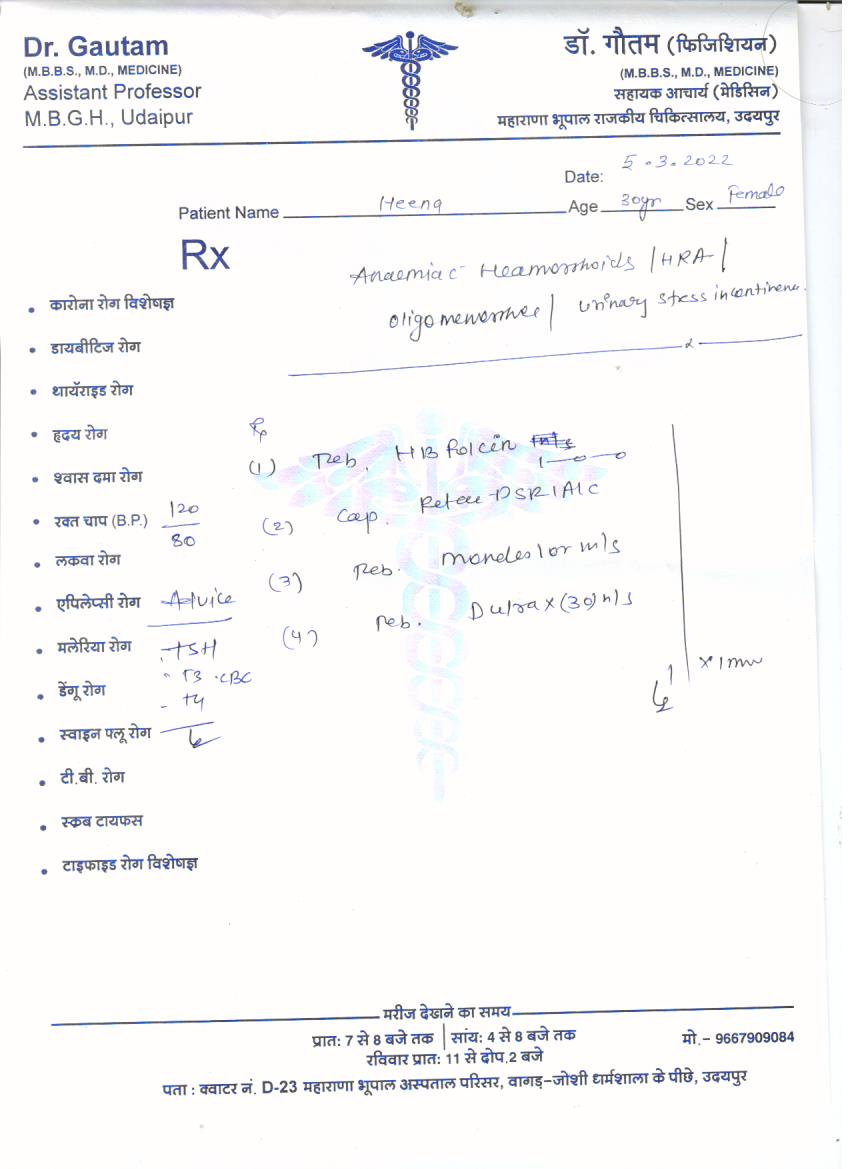 Dr. Gautam
(M.B.B.S., M.D., MEDICINE)
Assistant Professor
M.B.G.H., Udaipur
डॉ. गौतम (फिजिशियन)
(M.B.B.S., M.D., MEDICINE)
सहायक आचार्य (मेडिसिन)
महाराणा भूपाल राजकीय चिकित्सालय, उदयपुर
Date: 5.3.2022
Patient Name Heena Age 30yr Sex Female
Rx
Anaemiac Heamorrhoids / HRA /
oligomenorrhee / urinary stress incontinenc.
• कारोना रोग विशेषज्ञ
• डायबीटिज रोग
• थायॅराइड रोग
• हृदय रोग
• श्वास दमा रोग
• रक्त चाप (B.P.) 120
80
• लकवा रोग
• एपिलेप्सी रोग Advice
• मलेरिया रोग - TSH
• डेंगू रोग - T3 . CBC
- T4
• स्वाइन फ्लू रोग
• टी.बी. रोग
• स्क्रब टायफस
• टाइफाइड रोग विशेषज्ञ
Rp
(1) Teb. HB folcin
1—0—0
(2) Cap. DSR 1 A/c
(3) Teb. 1 or n/s
(4) Teb. (30) n/s
x 1
मरीज देखाने का समय
प्रात: 7 से 8 बजे तक | सांय: 4 से 8 बजे तक
रविवार प्रात: 11 से दोप.2 बजे
मो.– 9667909084
पता : क्वाटर नं. D-23 महाराणा भूपाल अस्पताल परिसर, वागड़–जोशी धर्मशाला के पीछे, उदयपुर